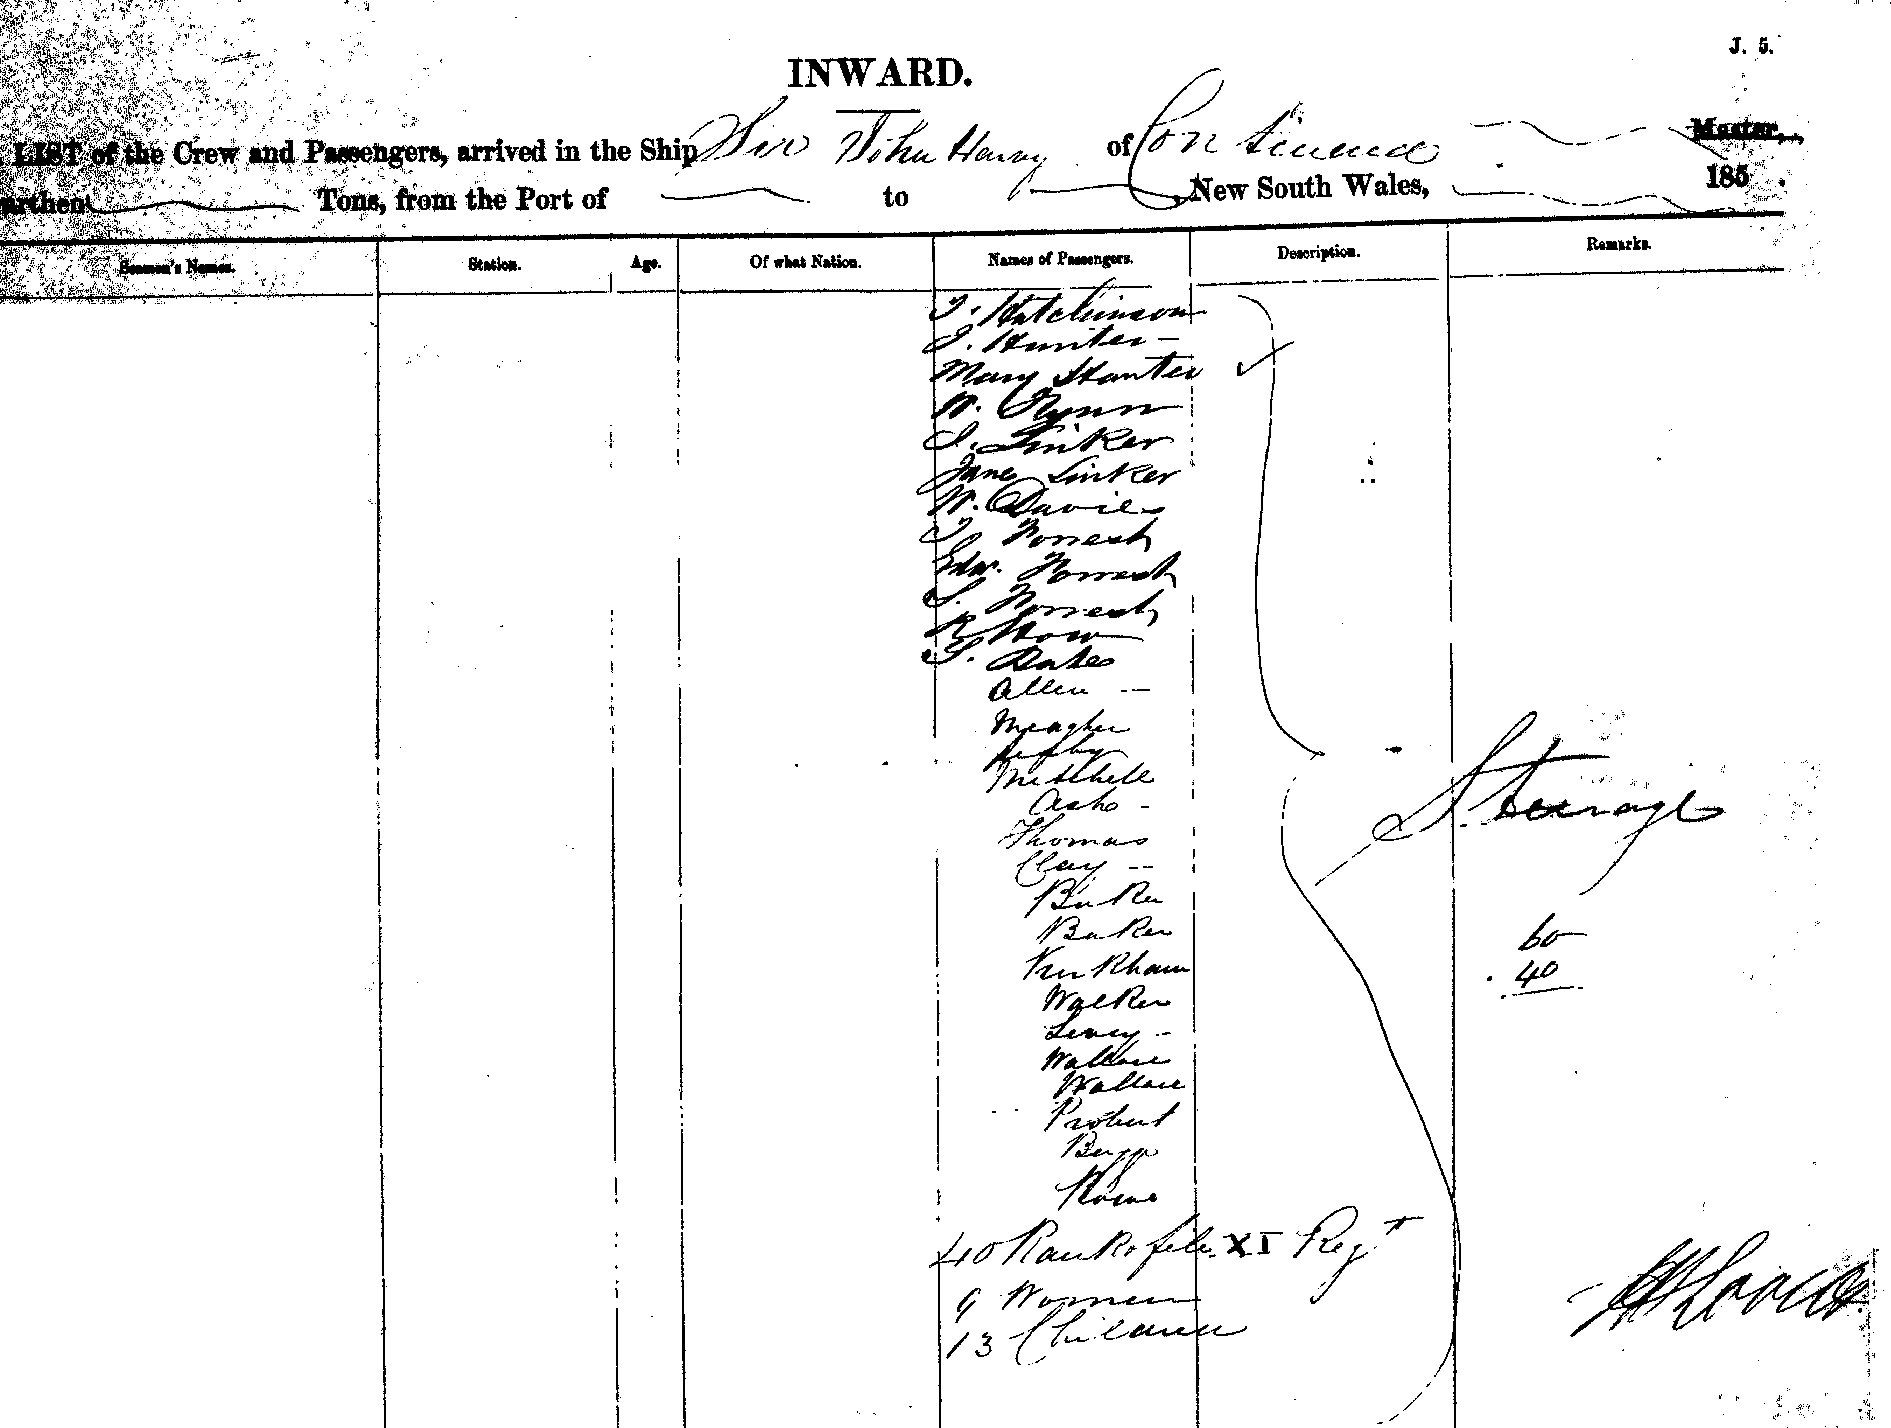 J. 5.
INWARD.
LIST of the Crew and Passengers, arrived in the Ship Sir John Harvey of Continued Master,
Burthen Tons, from the Port of to New South Wales, 185 .
Seamen's Names. Station. Age. Of what Nation. Names of Passengers. Description. Remarks.
T. Hutchinson
J. Hunter -
Mary Hunter ✓
W. Flynn
J. Linker
Jane Linker
W. Davies
J. Forrest
Edw. Forrest
S. Forrest
R How
S. Bates
Allen -
Meagher
Mitchell
Ash -
Thomas
Clay -
Baker
Kirkham
Walker
Levey -
Wallace
Wallace
Probert
Begg
Steerage
60
40
40 Rank & file XI Regt
9 Women
13 Children